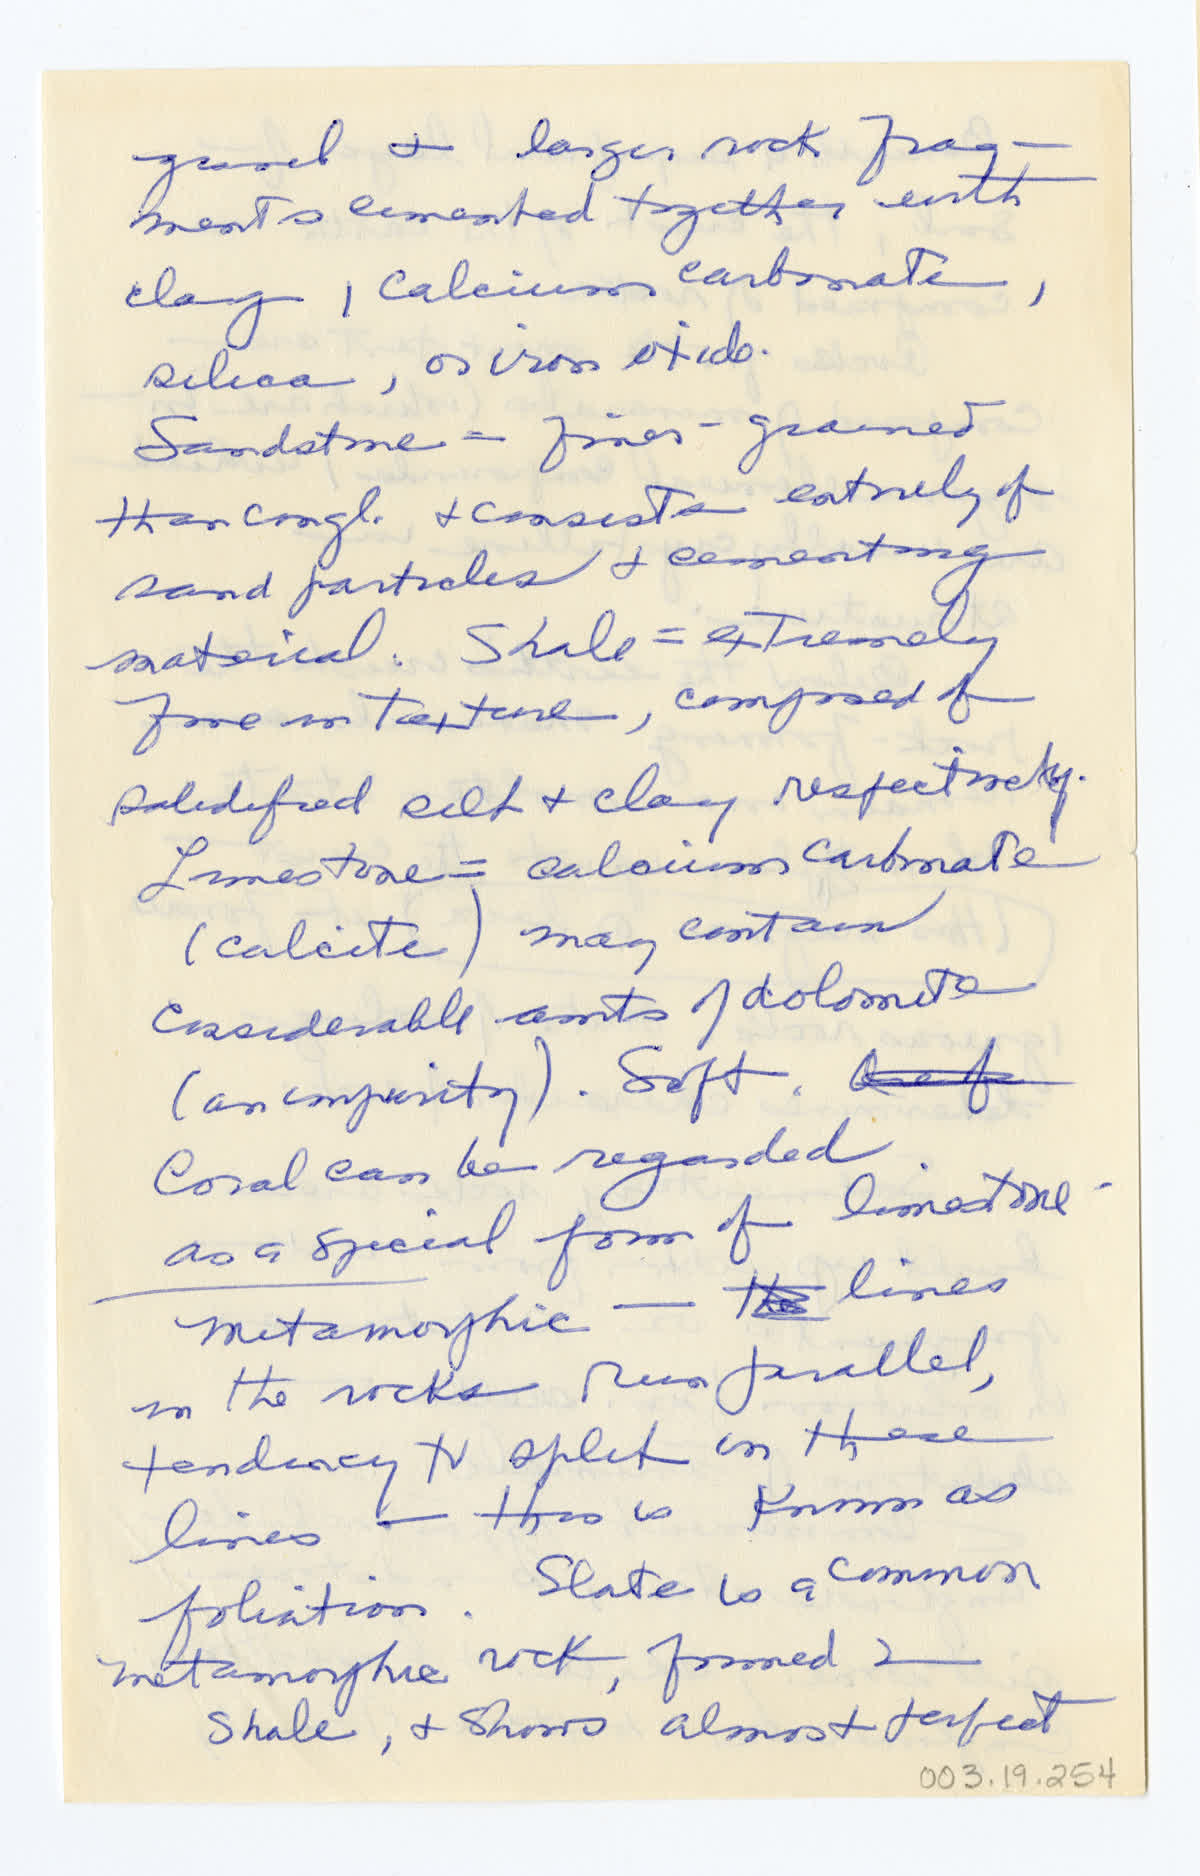 gravel & larger rock frag-
ments cemented together with
clay, calcium carbonate,
silica, or iron oxide.
Sandstone = finer-grained
than congl. & consists entirely of
sand particles & cementing
material. Shale = extremely
fine in texture, composed of
solidified silt & clay respectively.
Limestone = calcium carbonate
(calcite) may contain
considerable amts of dolomite
(an impurity). Soft.
Coral can be regarded
as a special form of limestone-
Metamorphic — the lines
in the rocks run parallel,
tendency to split in these
lines — this is known as
foliation. Slate is a common
metamorphic rock, formed
shale, & shows almost perfect
003.19.254